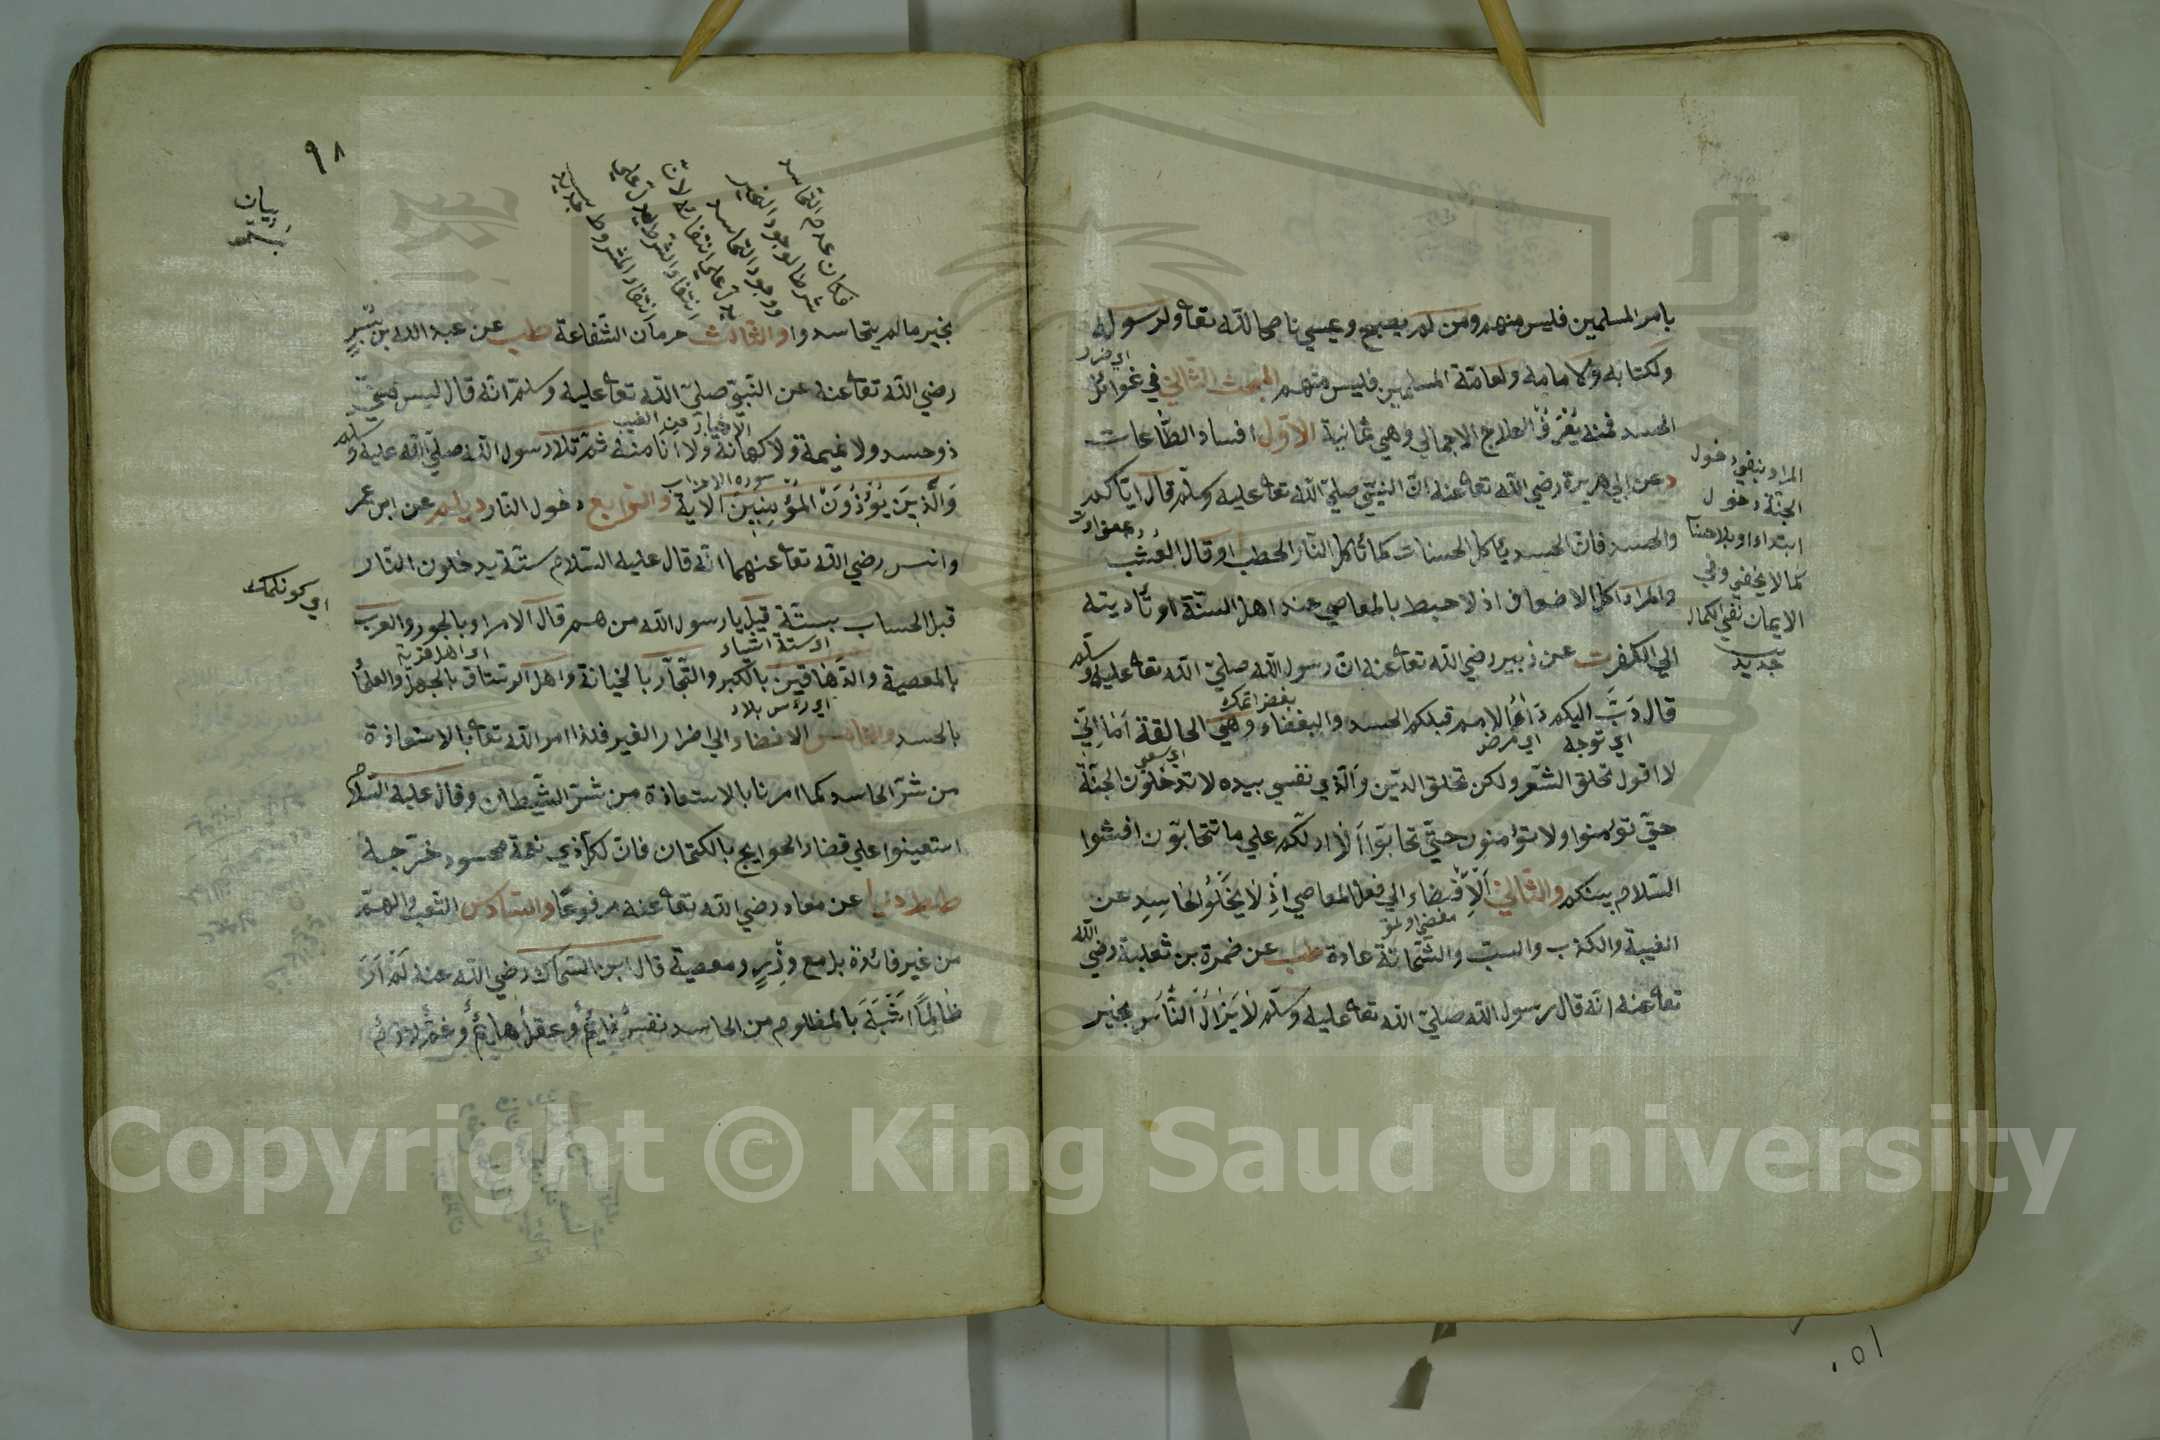 بامر المسلمين فليس منهم ومن لم يصبح ويمسي ناصحا لله تعا ولرسوله
ولكتابه ولامامه ولعامة المسلمين فليس منهم المبحث الثاني في غوائل
اي ضرر
الحسد فمنه يعرف العلاج الاجمالي وهي ثمانية الاول افساد الطاعات
د عن ابي هريرة رضي الله تعا عنه ان النبي صلي الله تعا عليه وسلم قال اياكم
والحسد فان الحسد يأكل الحسنات كما تأكل النار الحطب او قال العشب
والمراد اكل الاضعاف اذ لا حبط بالمعاصي عند اهل السنة او تأديته
الي الكفر ت عن زبير رضي الله تعا عنه ان رسول الله صلي الله تعا عليه وسلم
قال دَبَّ اليكم داء الامم قبلكم الحسد والبغضاء وهي الحالقة أما إني
اي توجه
اي مرض
لا اقول تحلق الشعر ولكن تحلق الدين والذي نفسي بيده لا تدخلون الجنة
حتي تؤمنوا ولا تؤمنون حتي تحابوا ألا ادلكم علي ما تتحابون افشوا
السلام بينكم والثاني الافضاء الي فعل المعاصي اذ لا يخلو الحاسد عن
الغيبة والكذب والسب والشماتة عادة طب عن ضمرة بن ثعلبة رضي الله
تعا عنه انه قال رسول الله صلي الله تعا عليه وسلم لا يزال الناس بخير
المراد بنفي دخول
الجنة دخول
ابتداء او بلا
كما لا يخفي وفي
الايمان نفي الكمال
٩٨
بيان
فكان عدم التحاسد
شرطا لوجود الخير
ووجود التحاسد
يدل علي انتفائه لان
انتفاء الشرط يدل علي
انتفاء المشروط
بخير ما لم يتحاسدوا والثالث حرمان الشفاعة طب عن عبد الله بن بسر
رضي الله تعا عنه عن النبي صلي الله تعا عليه وسلم انه قال ليس مني
ذو حسد ولا نميمة ولا كهانة ولا انا منه ثم تلا رسول الله صلي الله عليه وسلم
الاخبار عن الغيب
والذين يؤذون المؤمنين الآية والرابع دخول النار ديلم عن ابن عمر
سورة الاحزاب
وانس رضي الله تعا عنهما انه قال عليه السلام ستة يدخلون النار
قبل الحساب بستة قيل يا رسول الله من هم قال الامراء بالجور والعرب
بالمعصية والدهاقين بالكبر والتجار بالخيانة واهل الرستاق بالجهل والعلماء
اي اهل قرية
بالحسد والخامس الافضاء الي اضرار الغير فلذا امر الله تعا بالاستعاذة
من شر الحاسد كما امرنا بالاستعاذة من شر الشيطان وقال عليه السلام
استعينوا علي قضاء الحوايج بالكتمان فان كل ذي نعمة محسود خرجه
طط دنيا عن معاذ رضي الله تعا عنه مرفوعا والسادس التعب والهم
من غير فائدة بل مع وزر ومعصية قال ابن السماك رضي الله عنه لم ار
ظالما اشبه بالمظلوم من الحاسد نفس دايم وعقل هايم وغم لازم